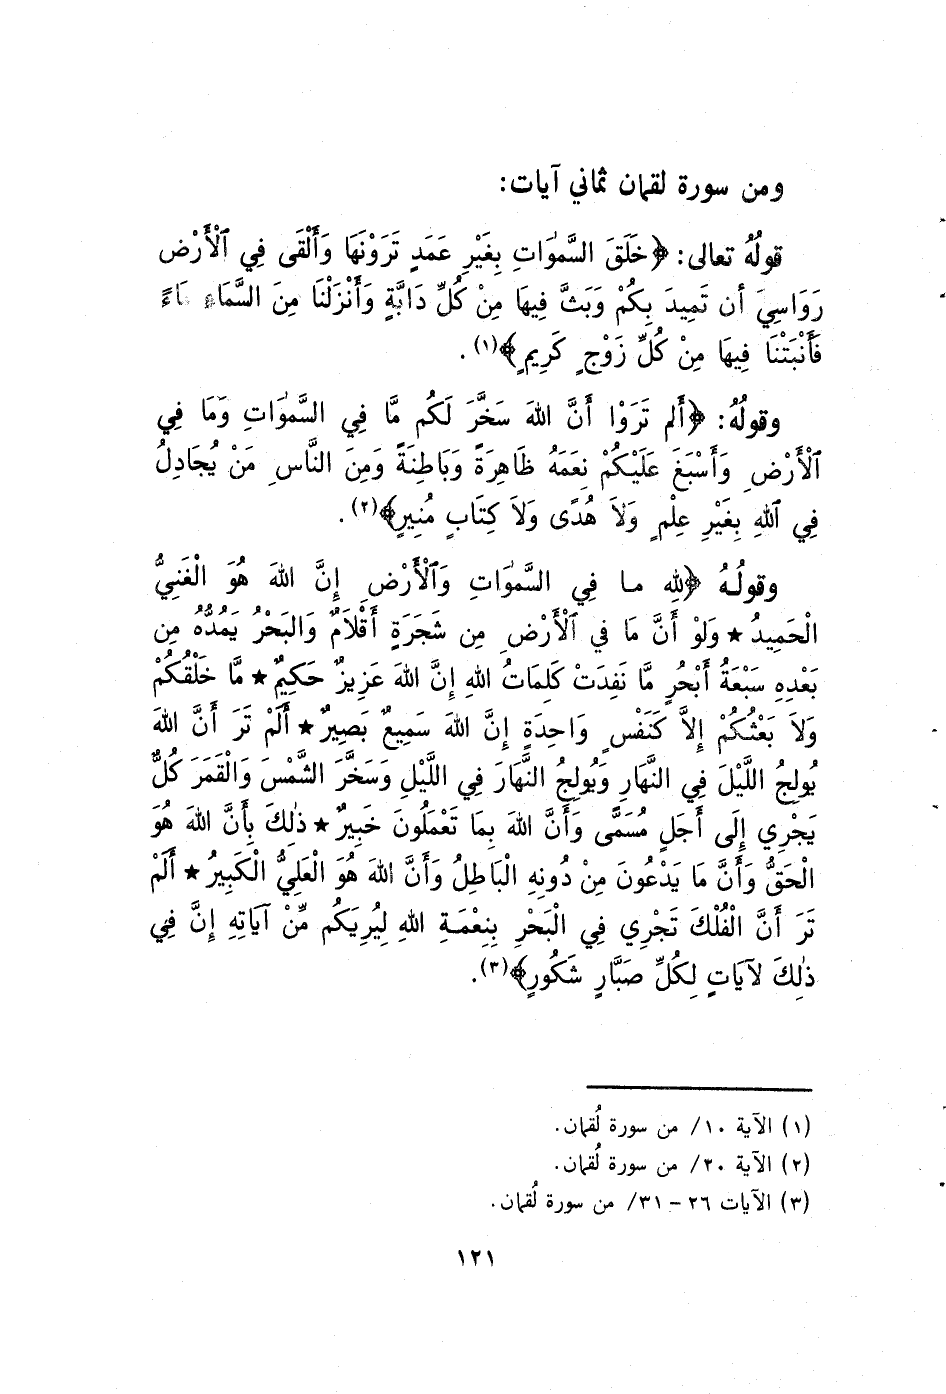 ومن سورة لقمان ثماني آيات:
قولُهُ تعالى: ﴿خَلَقَ السَّمٰوَاتِ بِغَيْرِ عَمَدٍ تَرَوْنَهَا وَأَلْقَى فِي ٱلْأَرْضِ
رَوَاسِيَ أن تَمِيدَ بِكُمْ وَبَثَّ فِيهَا مِنْ كُلِّ دَابَّةٍ وَأَنْزَلْنَا مِنَ السَّمَاءِ مَاءً
فَأَنْبَتْنَا فِيهَا مِنْ كُلِّ زَوْجٍ كَرِيمٍ﴾(١).
وقولُهُ: ﴿أَلم تَرَوْا أَنَّ اللهَ سَخَّرَ لَكُم مَّا فِي السَّمٰوَاتِ وَمَا فِي
ٱلْأَرْضِ وَأَسْبَغَ عَلَيْكُمْ نِعَمَهُ ظَاهِرَةً وَبَاطِنَةً وَمِنَ النَّاسِ مَنْ يُجَادِلُ
فِي ٱللهِ بِغَيْرِ عِلْمٍ وَلاَ هُدًى وَلاَ كِتَابٍ مُنِيرٍ﴾(٢).
وقولُهُ ﴿للهِ ما فِي السَّمٰوَاتِ وَٱلْأَرْضِ إِنَّ اللهَ هُوَ الْغَنِيُّ
الْحَمِيدُ ★ وَلَوْ أَنَّ مَا في ٱلْأَرْضِ مِن شَجَرَةٍ أَقْلَامٌ وَالبَحْرُ يَمُدُّهُ مِن
بَعْدِهِ سَبْعَةُ أَبْحُرٍ مَّا نَفِدَتْ كَلِمَاتُ اللهِ إِنَّ اللهَ عَزِيزٌ حَكِيمٌ ★ مَّا خَلْقُكُمْ
وَلاَ بَعْثُكُمْ إِلاَّ كَنَفْسٍ وَاحِدَةٍ إِنَّ اللهَ سَمِيعٌ بَصِيرٌ ★ أَلَمْ تَرَ أَنَّ اللهَ
يُولِجُ اللَّيْلَ فِي النَّهَارِ وَيُولِجُ النَّهَارَ فِي اللَّيْلِ وَسَخَّرَ الشَّمْسَ وَالْقَمَرَ كُلٌّ
يَجْرِي إِلَى أَجَلٍ مُسَمًّى وَأَنَّ اللهَ بِمَا تَعْمَلُونَ خَبِيرٌ ★ ذٰلِكَ بِأَنَّ اللهَ هُوَ
الْحَقُّ وَأَنَّ مَا يَدْعُونَ مِنْ دُونِهِ الْبَاطِلُ وَأَنَّ اللهَ هُوَ الْعَلِيُّ الْكَبِيرُ ★ أَلَمْ
تَرَ أَنَّ الْفُلْكَ تَجْرِي فِي الْبَحْرِ بِنِعْمَةِ اللهِ لِيُرِيَكُم مِّنْ آيَاتِهِ إِنَّ فِي
ذٰلِكَ لآيَاتٍ لِكُلِّ صَبَّارٍ شَكُورٍ﴾(٣).
(١) الآية ١٠/ من سورة لُقمان.
(٢) الآية ٢٠/ من سورة لُقمان.
(٣) الآيات ٢٦ – ٣١/ من سورة لُقمان.
١٢١